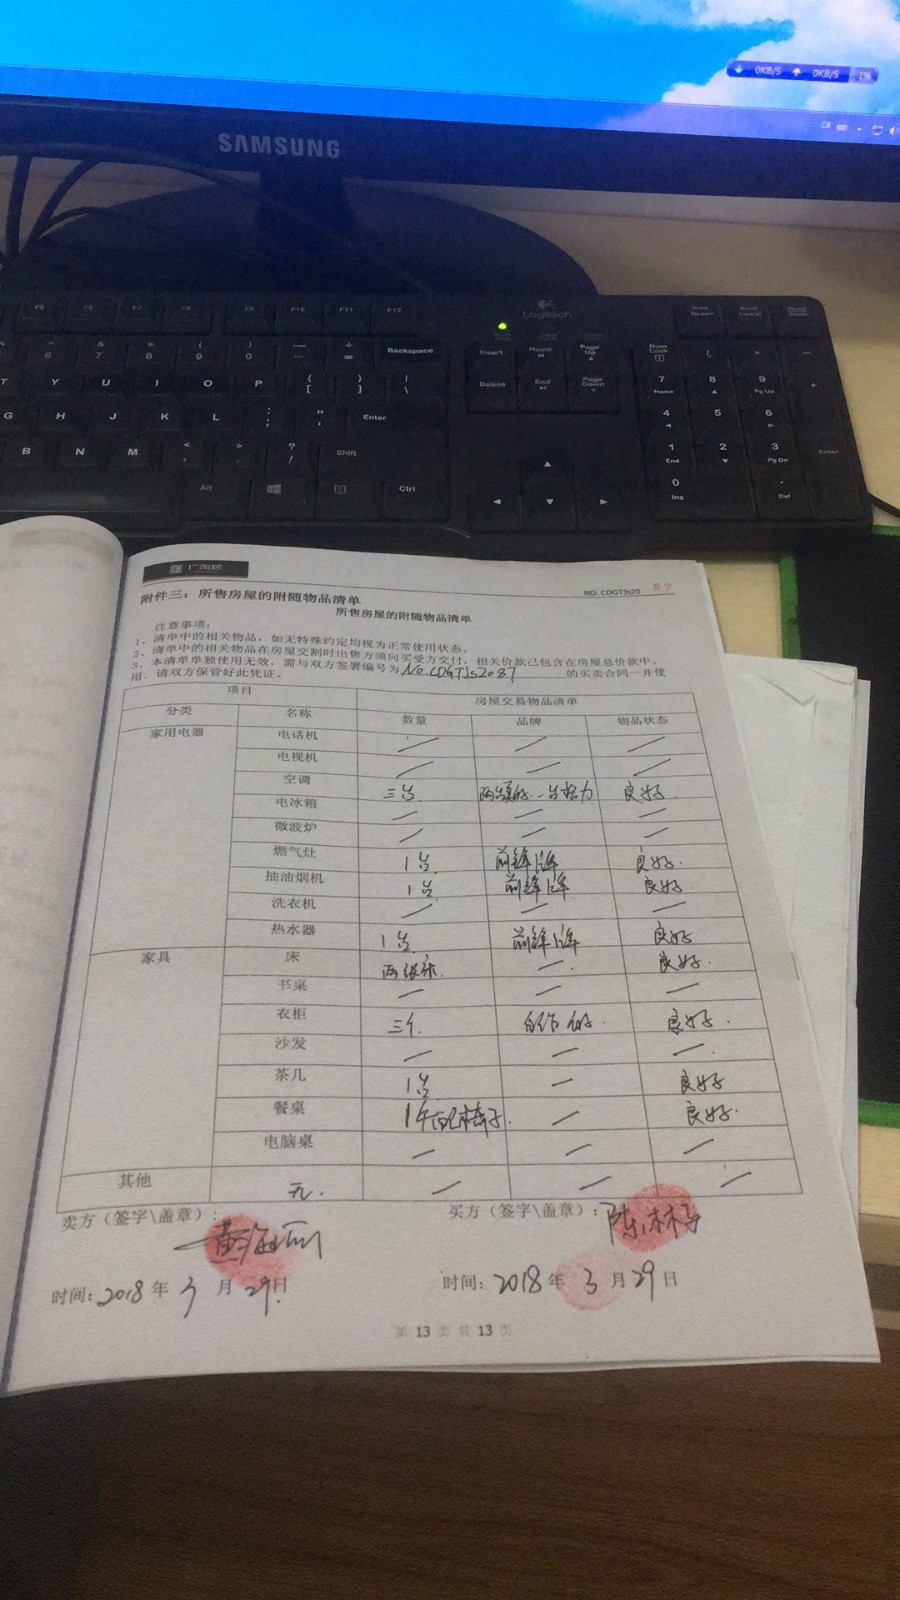 0KB/S 0KB/S 1%
CH
SAMSUNG
Logitech
F9 F10 F11 F12
6 7 8 9 0 Backspace
Insert Home Page Up
Num Lock
T Y U I O P
Delete End Page Down
7 Home 8 9 Pg Up
G H J K L Enter
4 5 6
B N M Shift
1 End 2 3 Pg Dn Enter
Alt Ctrl
0 Ins Del
NO CDGTJs20 87
附件三：所售房屋的附随物品清单
所售房屋的附随物品清单
注意事项：
1、清单中的相关物品，如无特殊约定均视为正常使用状态。
2、清单中的相关物品在房屋交割时出售方须向买受方交付，相关价款已包含在房屋总价款中。
3、本清单单独使用无效，需与双方签署编号为No.CDGTJs2087的买卖合同一并使
用。请双方保管好此凭证。
项目 房屋交易物品清单
分类 名称 数量 品牌 物品状态
家用电器 电话机 / / /
电视机 / / /
空调 三台 两台美的、一台格力 良好.
电冰箱 / / /
微波炉 / / /
燃气灶 1台 前锋 良好.
抽油烟机 1台 前锋 良好.
洗衣机 / / /
热水器 1台 前锋 良好
家具 床 两张床. / 良好.
书桌 / / /
衣柜 三个. 良好.
沙发 / / /
茶几 1台 / 良好
餐桌 / 良好.
电脑桌 / / /
其他 无. / / /
卖方（签字\盖章）： 买方（签字\盖章）：
时间：2018年3月29日 时间：2018年3月29日
第 13 页 共 13 页